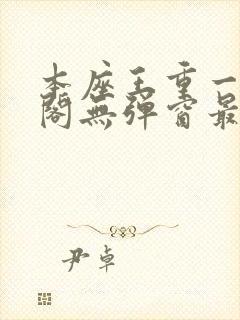 本座王重一
閣無彈窗最
尹卓